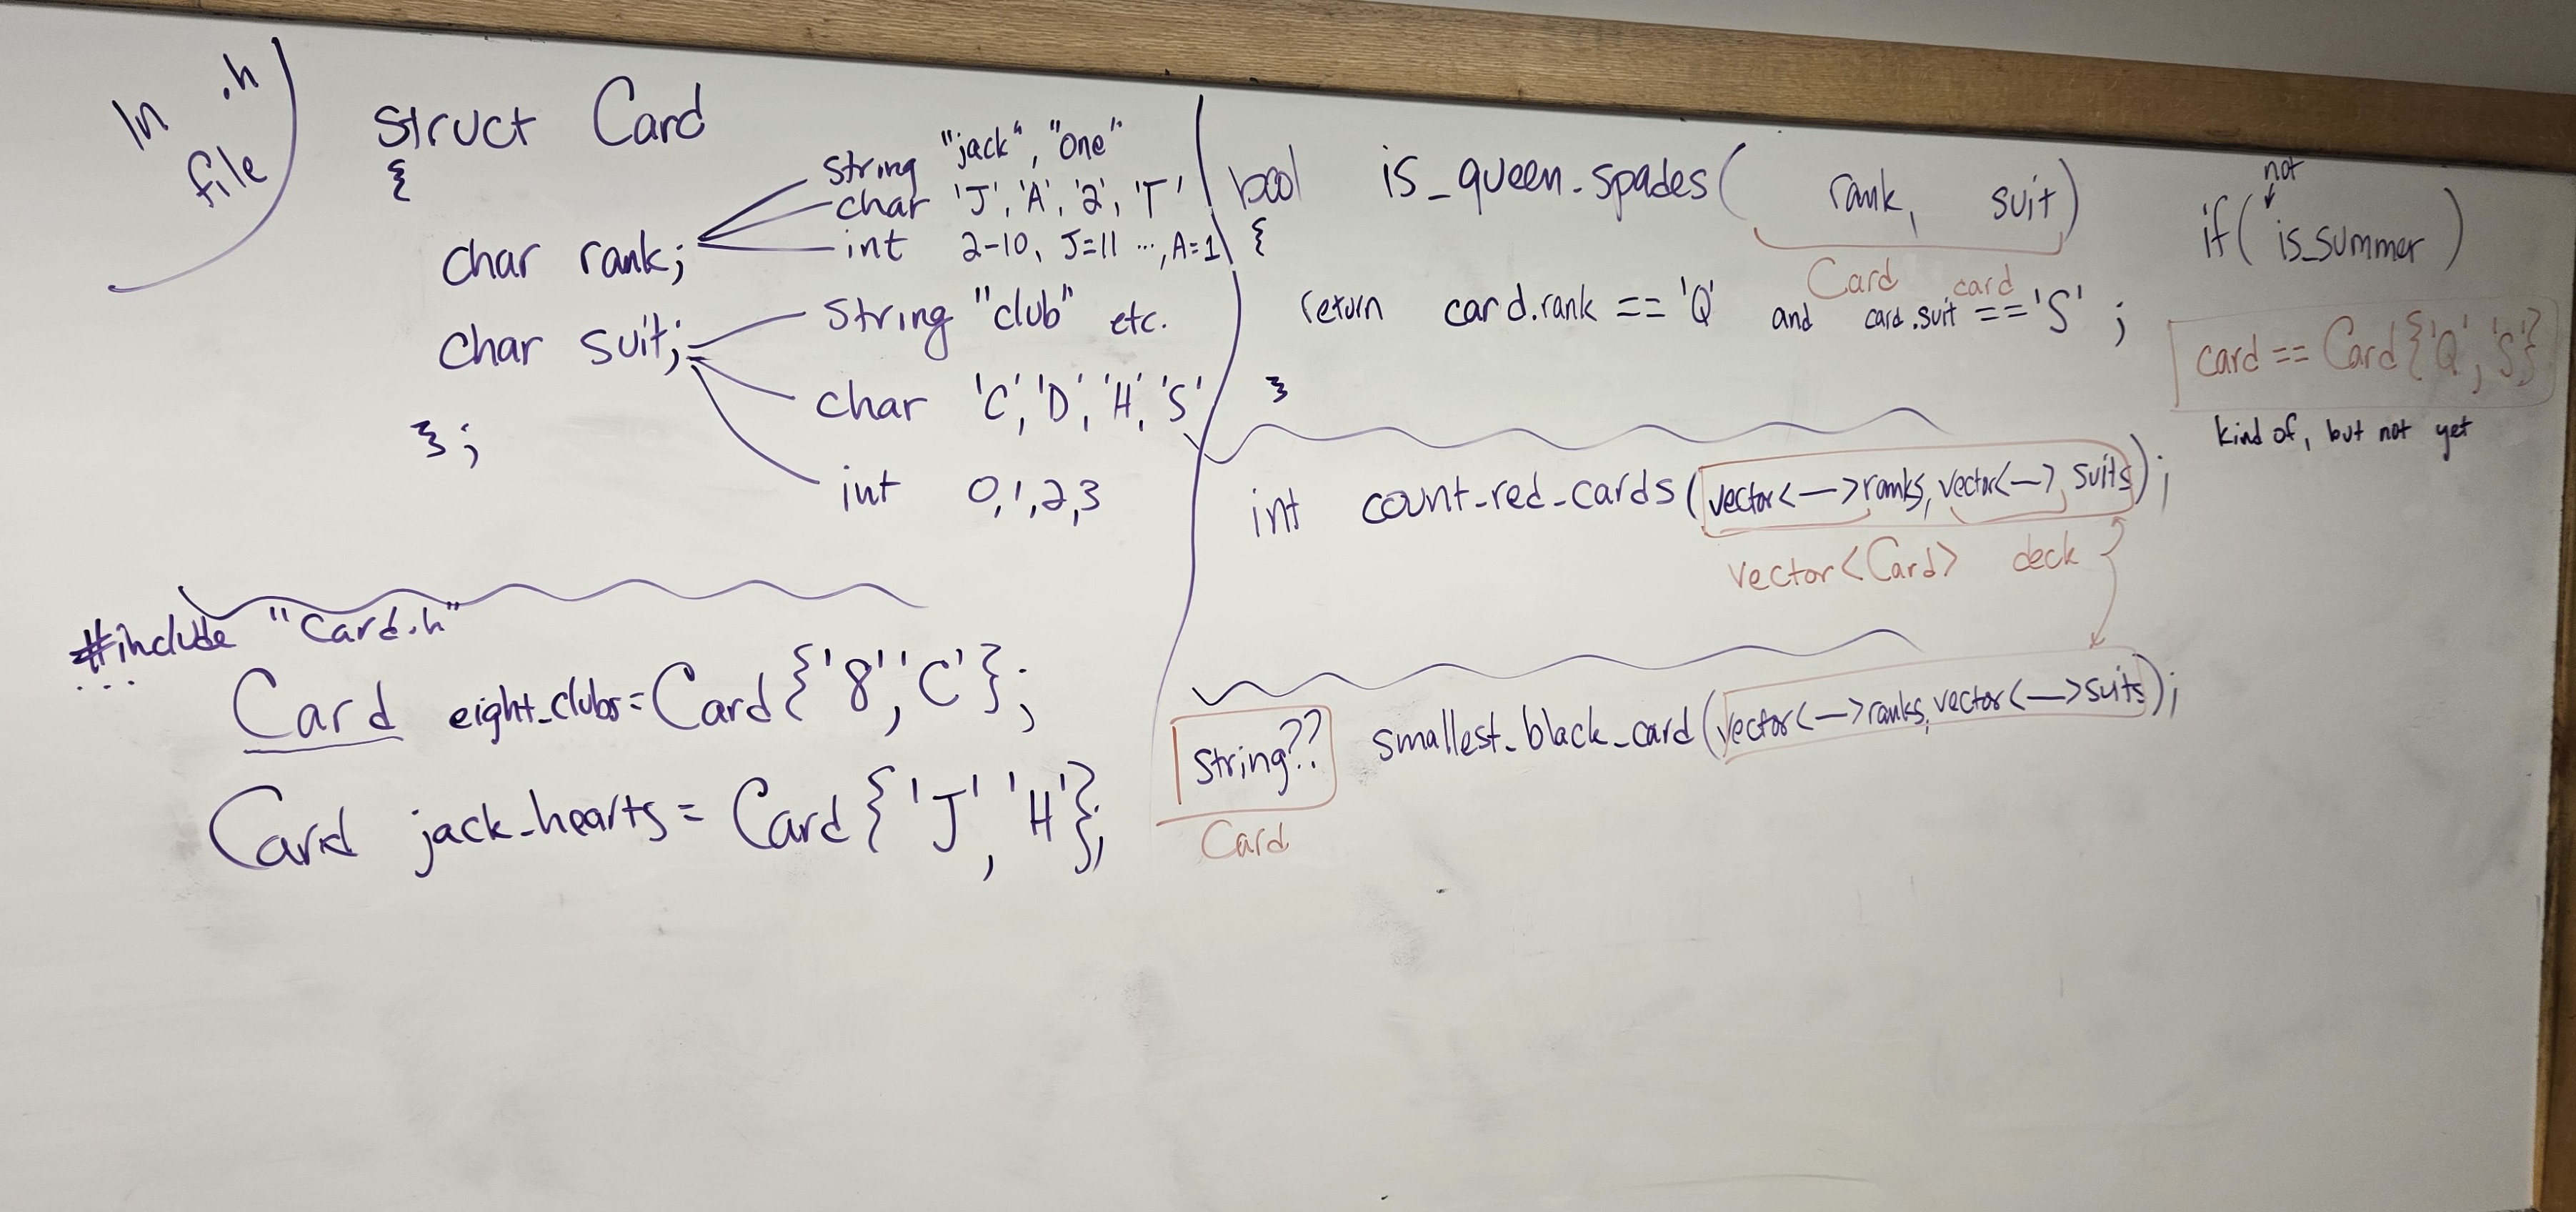 In .h
file
struct Card
{
char rank;
string "jack", "one"
char 'J', 'A', '2', 'T'
int 2-10, J=11 ..., A=1
char suit;
string "club" etc.
char 'C', 'D', 'H', 'S'
int 0,1,2,3
};
#include "Card.h"
...
Card eight_clubs = Card{'8','C'};
Card jack_hearts = Card{'J','H'};
bool is_queen_spades( rank, suit)
Card card
{
return card.rank == 'Q' and card.suit == 'S' ;
}
not
if( is_summer )
card == Card{'Q','S'}
kind of, but not yet
int count_red_cards(vector<—>ranks, vector<—> suits);
vector<Card> deck
string?? smallest_black_card(vector<—>ranks, vector<—>suits);
Card